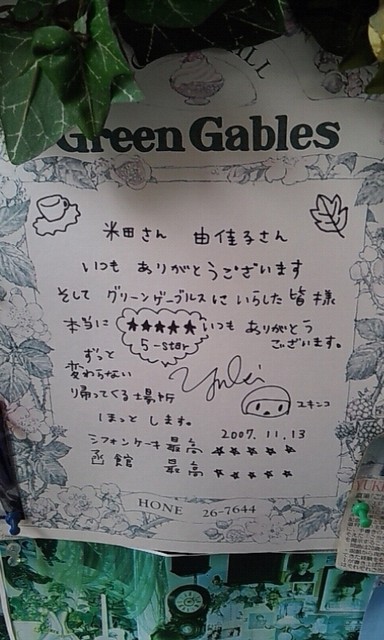 Green Gables
米田さん 由佳子さん
いつも ありがとうございます
そして グリーンゲーブルスに いらした 皆様
本当に ★★★★★ いつも ありがとう
5-star ございます。
ずっと
変わらない
帰ってくる場所 ユキンコ
ほっと します。
2007.11.13
シフォンケーキ 最高 ☆☆☆☆☆
函館 最高 ☆☆☆☆☆
HONE 26-7644
YUKI